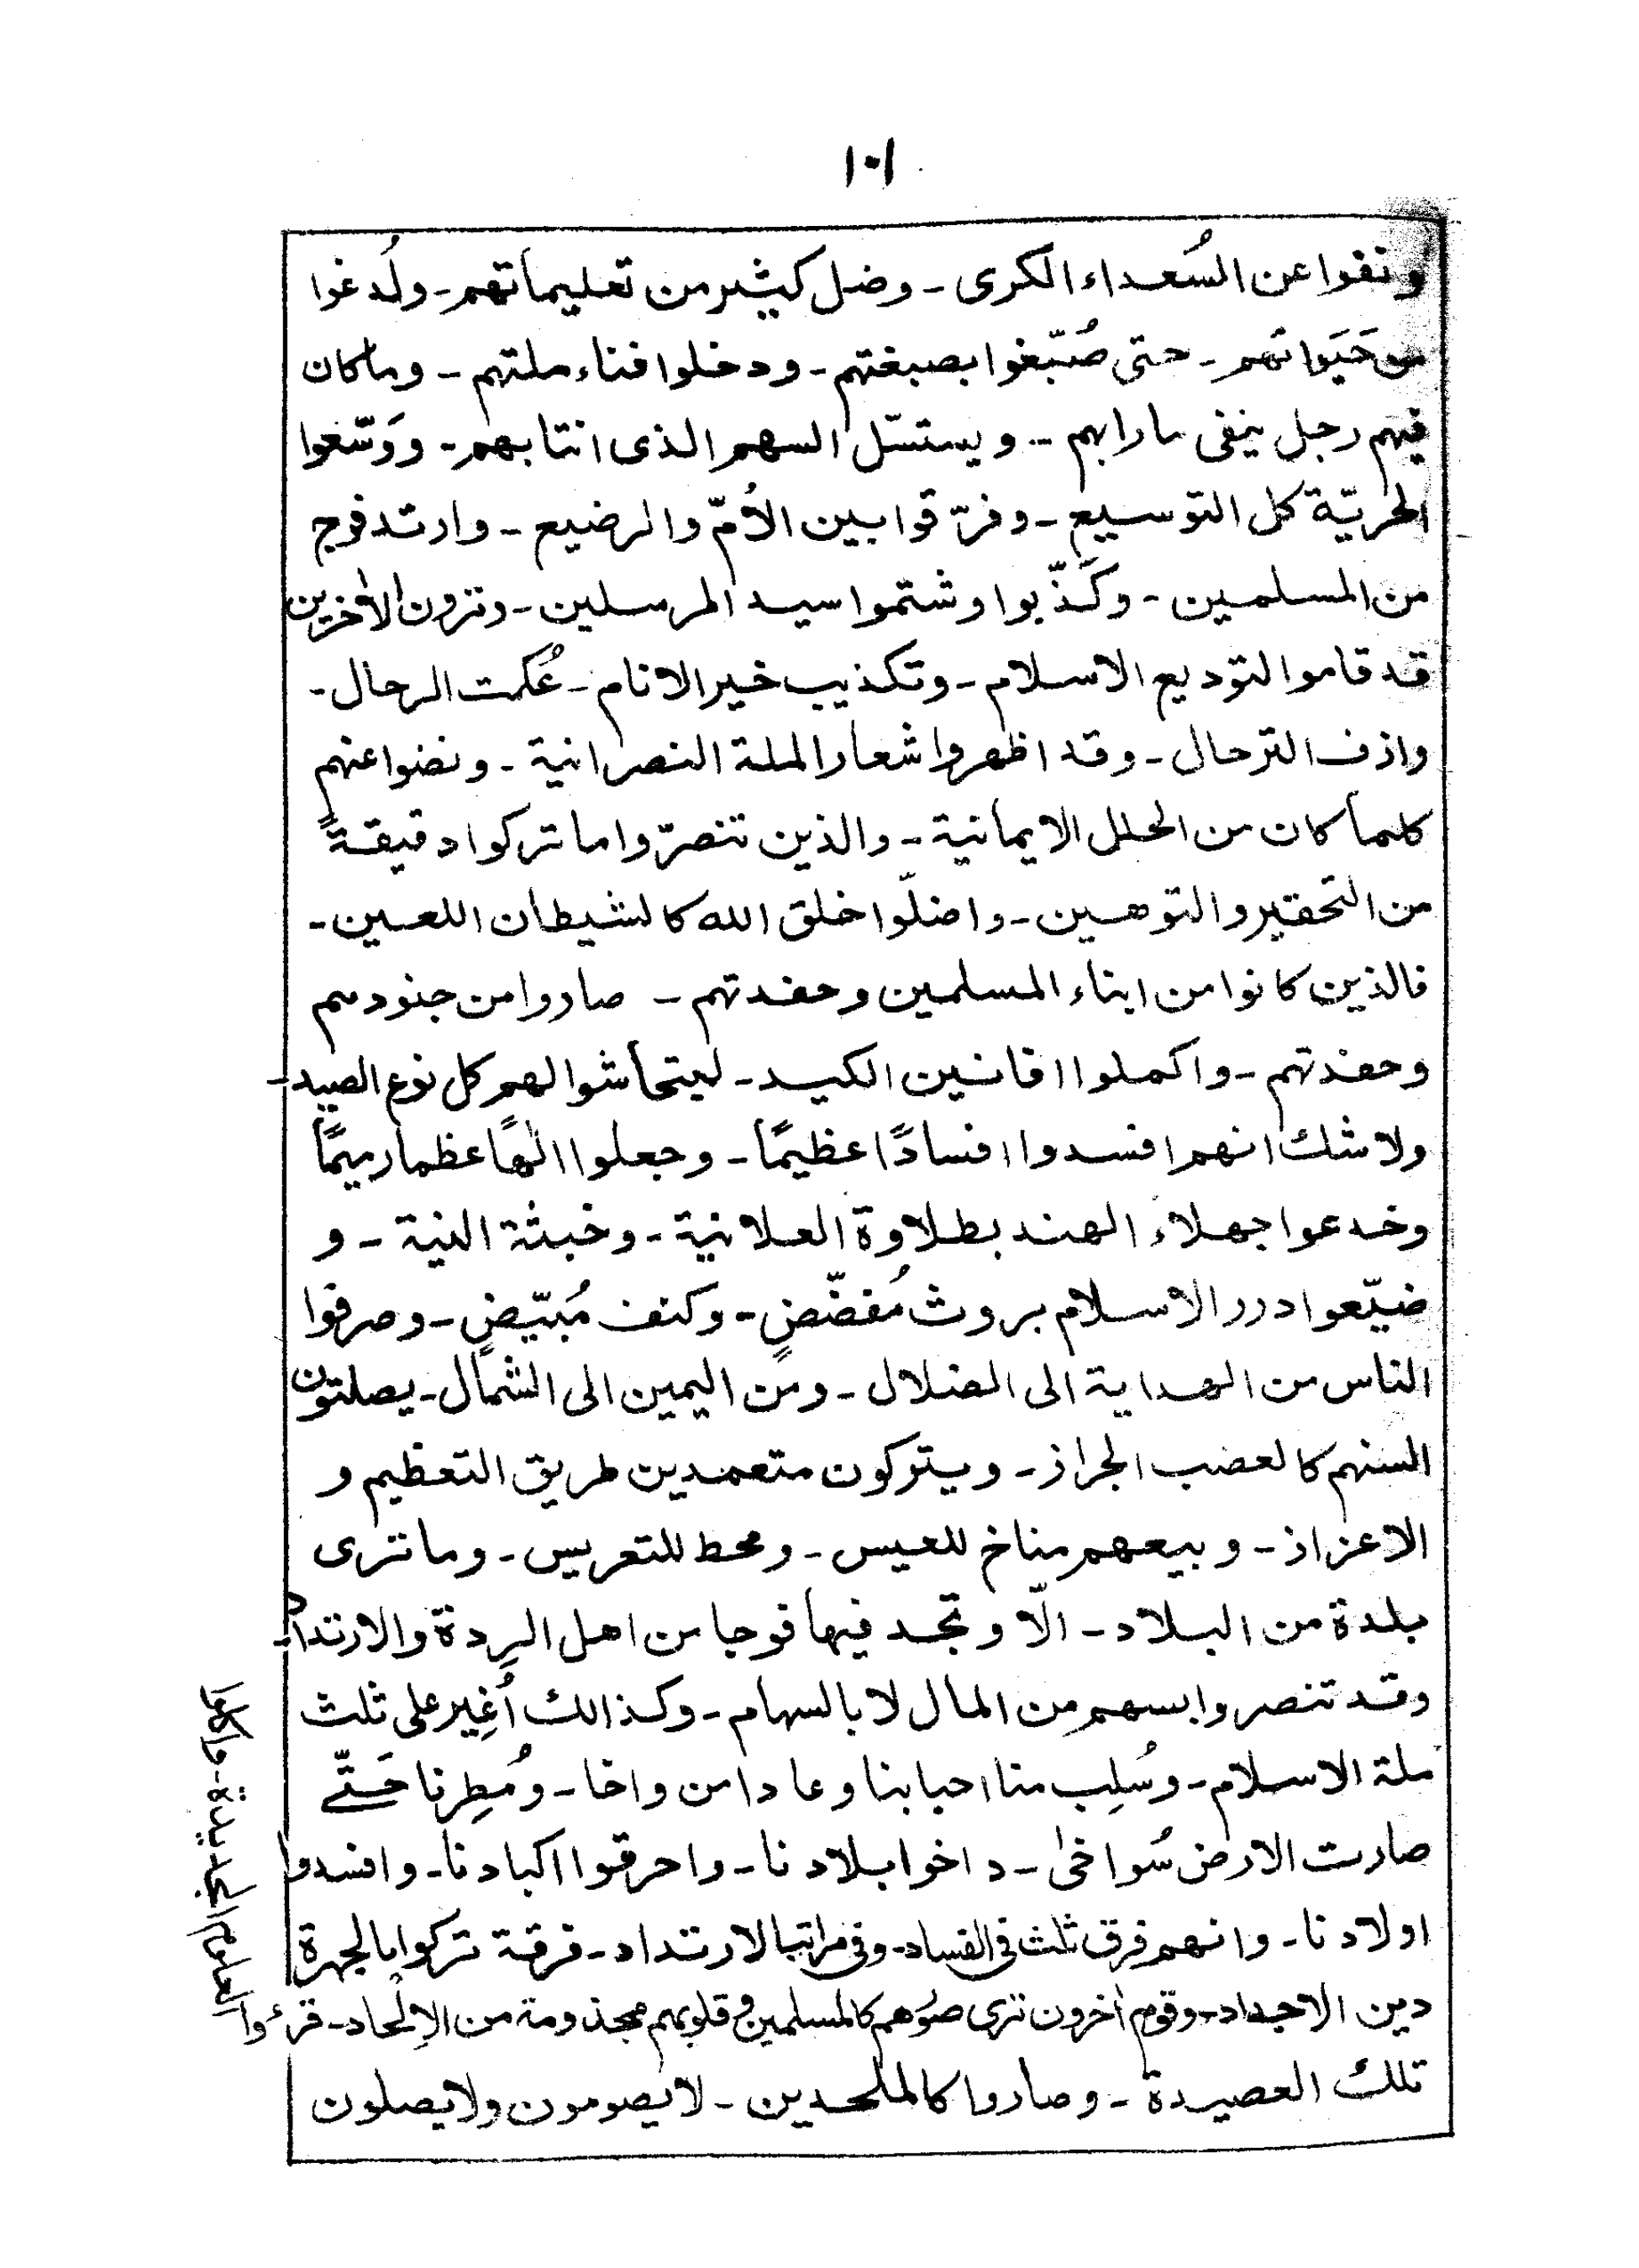 ١٠١
ونفوا عن السُعداء الكرى ـ وضل كثير من تعليماتهم ـ ولُدغوا
من حَيَواتهم ـ حتى صُبّغوا بصبغتهم ـ ودخلوا فناء ملتهم ـ وما كان
فيهم رجل ينفى ما رابهم ـ ويستسّل السهم الذى انتابهم ـ ووَسّعوا
الحريّة كل التوسيع ـ وفرّقوا بين الأُمّ والرضيع ـ وارتد فوج
من المسلمين ـ وكَذّبوا وشتموا سيد المرسلين ـ وترون الاٰخرين
قد قاموا لتوديع الاسلام ـ وتكذيب خير الانام ـ عُكمت الرحال ـ
وازف الترحال ـ وقد اظهروا شعار الملة النصرانية ـ ونضوا عنهم
كلما كان من الحلل الايمانية ـ والذين تنصرّوا ما تركوا دقيقةً
من التحقير والتوهين ـ واضلّوا خلق الله كالشيطان اللعين ـ
فالذين كانوا من ابناء المسلمين وحفدتهم ـ صاروا من جنودهم
وحفدتهم ـ واكملوا افانين الكيد ـ ليتحاشوا لهم كل نوع الصيد ـ
ولا شك انهم افسدوا افسادًا عظيمًا ـ وجعلوا الٰهًا عظما رميمًا
وخدعوا جهلاء الهند بطلاوة العلانية ـ وخبثة النية ـ و
ضيّعوا درر الاسلام بروث مُفضّضٍ ـ وكنف مُبيّضٍ ـ وصرفوا
الناس من الهداية الى الضلال ـ ومن اليمين الى الشمال ـ يصلتون
السنهم كالعضب الجراز ـ ويتركون متعمدين طريق التعظيم و
الاعزاز ـ وبيعهم مناخ للعيس ـ ومحط للتعريس ـ وما ترى
بلدة من البلاد ـ الّا وتجد فيها فوجا من اهل الرِدة والارتداد ـ
وقد تنصروا بسهم من المال لا بالسهام ـ وكذالك أُغِير على ثلث
ملة الاسلام ـ وسُلِب منا احبابنا وعادا من واخا ـ ومُطِرنا حَتّى
صارت الارض سُواخى ـ داخوا بلادنا ـ واحرقوا اكبادنا ـ وافسدوا
اولادنا ـ وانهم فرق ثلث فى الفساد ـ وفى مراتب الارتداد ـ فرقة تركوا بالجهرة
دين الاجداد ـ وقوم اٰخرون ترى صُوَرهم كالمسلمين وقلوبهم مجذومة من الإلحاد ـ قرءوا
العلوم الجديدة ـ واكلوا
تلك العصيدة ـ وصاروا كالملحدين ـ لا يصومون ولا يصلون